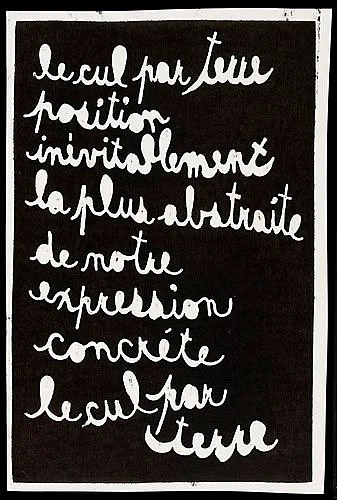 le cul par terre
position
inévitablement
la plus abstraite
de notre
expression
concréte
le cul par
terre